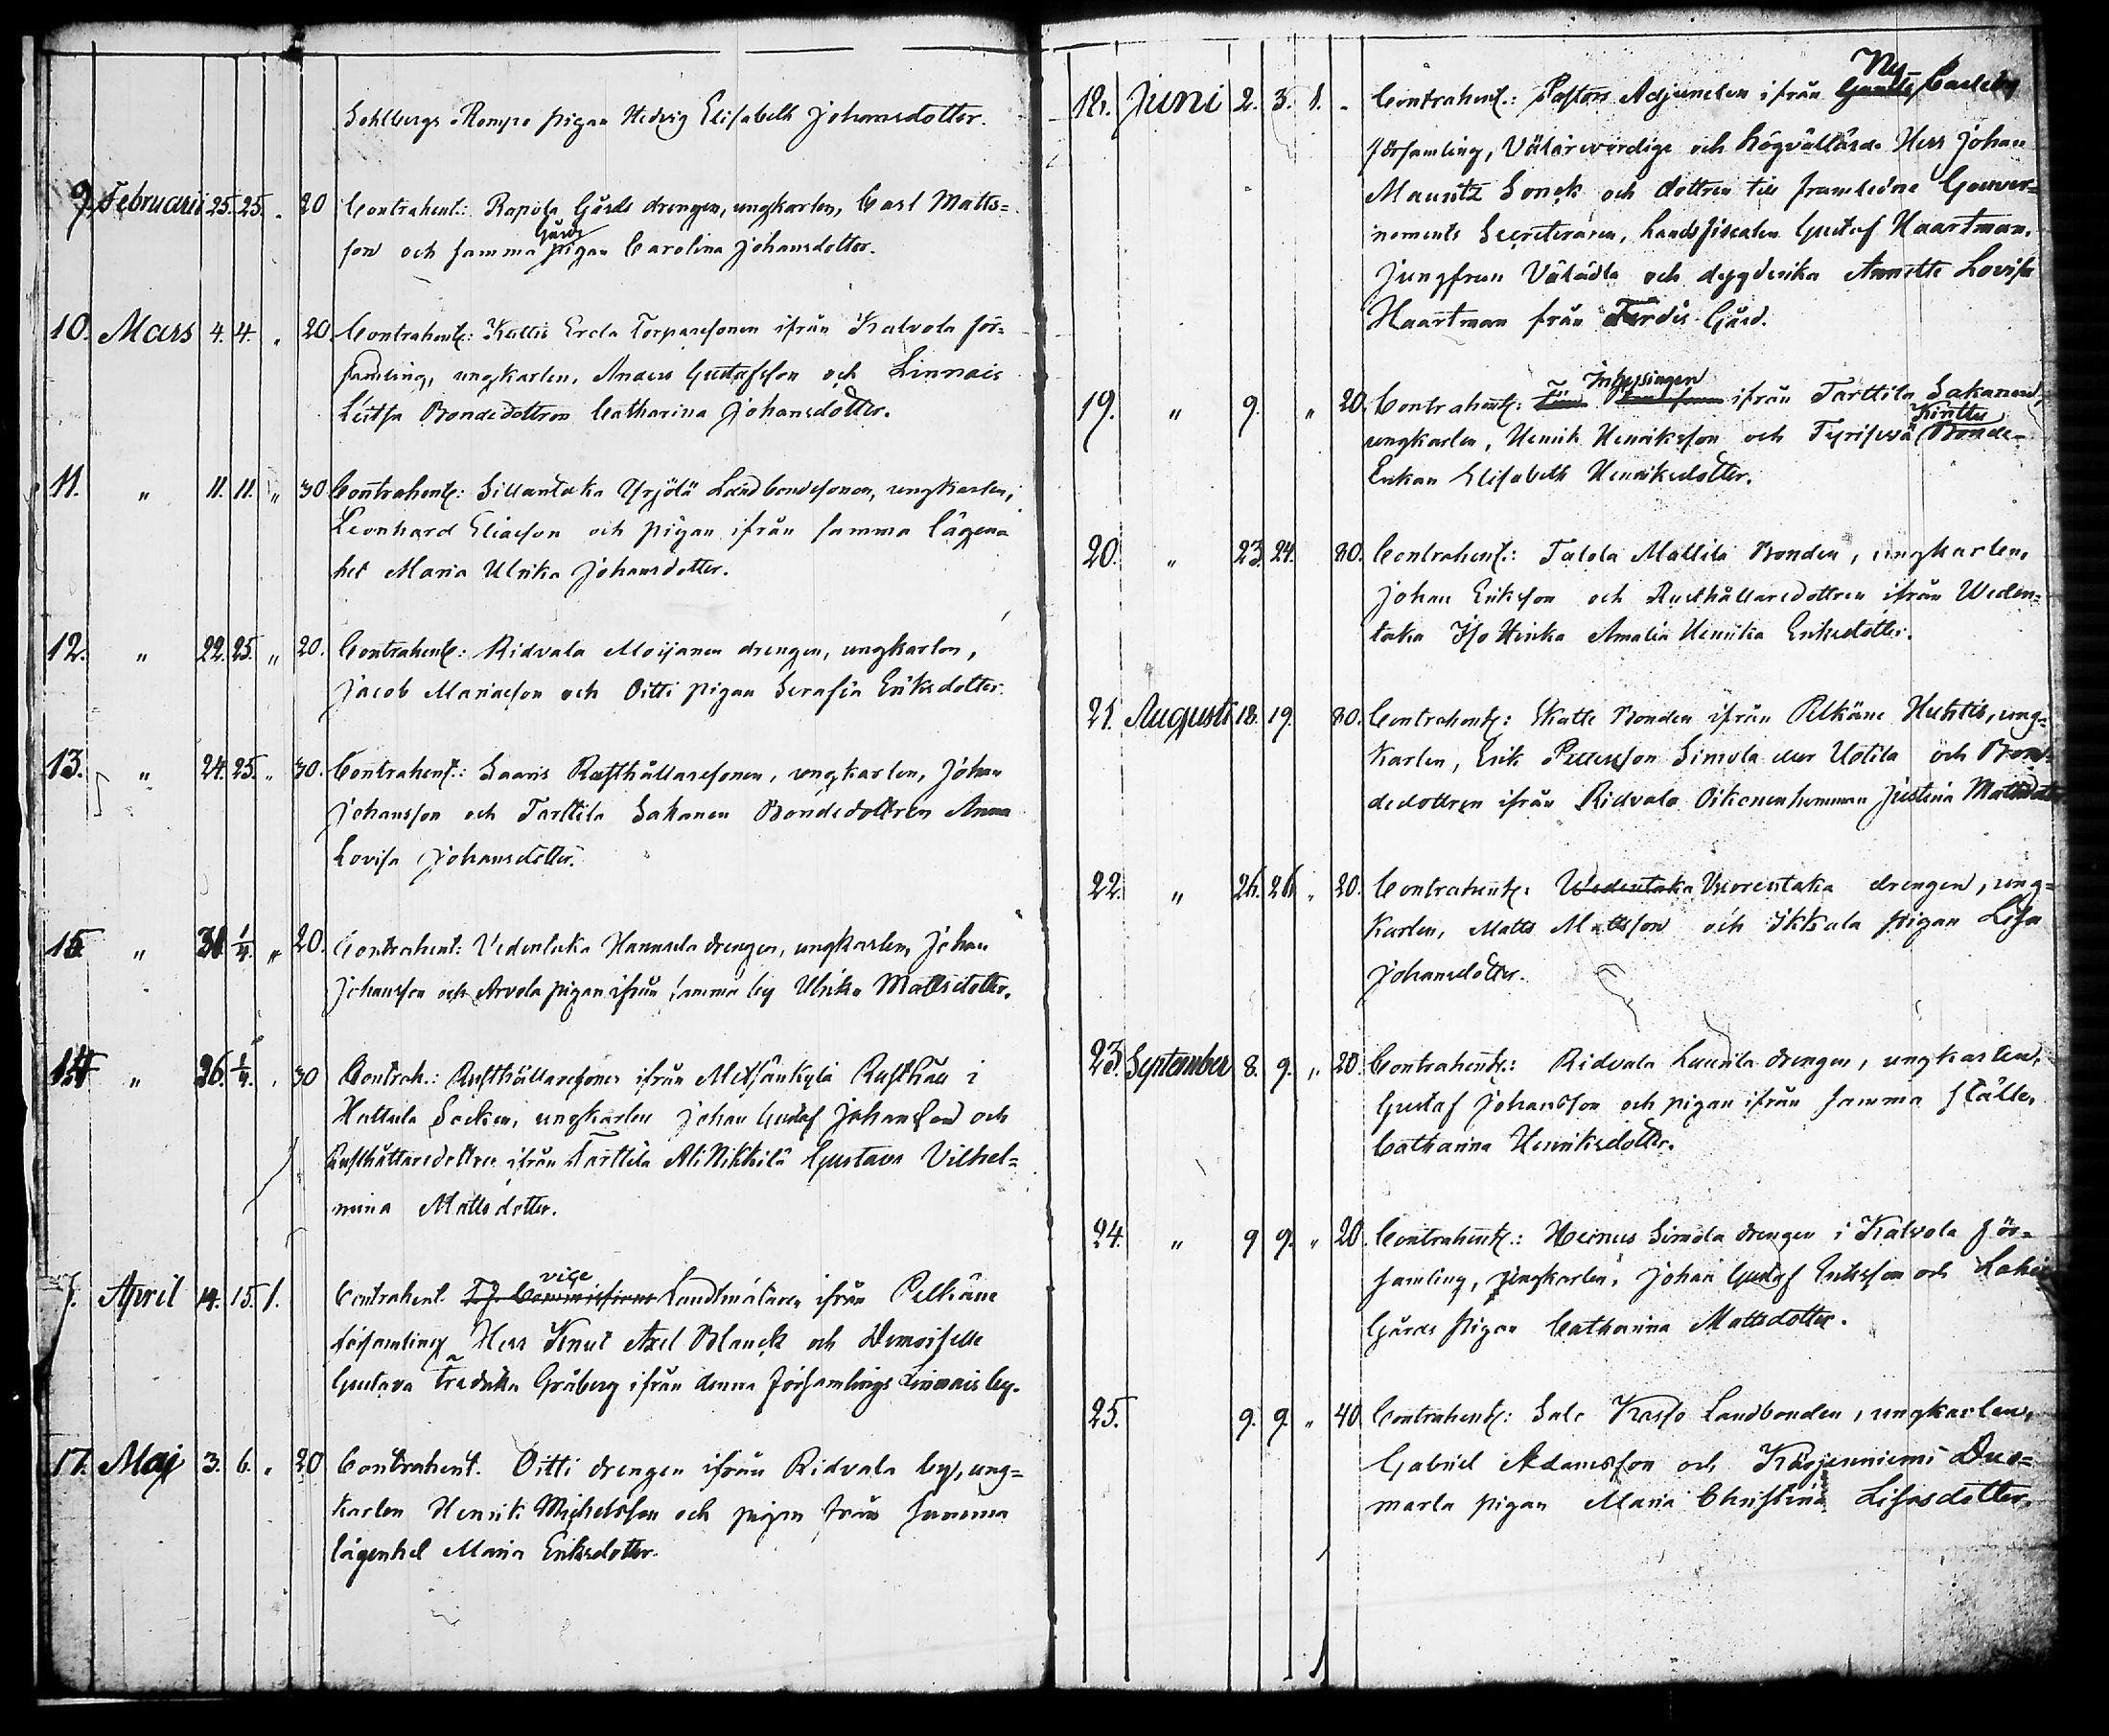 Sohlbergs Rompo pigan Hedvig Elisabeth Johansdotter.
9. Februarii 25. 25. „ 20 Contrahent.: Rapola Gårds drengen, ungkarlen, Carl Matts=
son och samma Gårds pigan Carolina Johansdotter.
10. Mars 4. 4. „ 20. Contrahent.: Kattis Erola Torparesonen ifrån Kalvola för=
samling, ungkarlen, Anders Gustafsson och Linnais
Bondedottren Catharina Johansdotter.
11. „ 11. 11. „ 30 Contrahent.: Sillantaka Yrjölä Landbondesonen, ungkarlen,
Leonhard Eliasson och pigan ifrån samma lägen=
het Maria Ulrika Johansdotter.
12. „ 22. 25. „ 20. Contrahent.: Ridvala Moijanen drengen, ungkarlen,
Jacob Mariasson och Oitti pigan Serafia Eriksdotter
13. „ 24. 25. „ 30. Contrahent.: Saaris Rusthållaresonen, ungkarlen, Johan
Johansson och Tarttila Sakanen Bondedottren Anna
Lovisa Johansdotter.
15 „ 31 1/4. „ 20. Contrahent: Vedentaka Hannula drengen, ungkarlen, Johan
Johansson och Arvola pigan ifrån samma by Ulrika Mattsdotter.
14 „ 26. 1/4. „ 30 Contrah.: Rusthållaresonen ifrån Metsänkylä Rusthåll i
Hattula Socken, ungkarlen Johan Gustaf Johansson och
Rusthållaredottren ifrån Tarttila Ali Nikkilä Gustava Vilhel=
mina Mattsdotter.
April 14. 15. 1. Contrahent. vice Landtmätaren ifrån Pelkäne
församling Herr Knut Axel Blanck och Demoiselle
Gustava Fredrika Gråberg ifrån denna församlings Linnais by.
17. Maj 3. 6. „ 20 Contrahent. Oitti drengen ifrån Ridvala by, ung=
karlen Henrik Michelsson och pigan från samma
lägenhet Maria Eriksdotter.
18. Juni 2. 3. 1. „ Contrahent.: Pastors Adjuncten ifrån Ny Carleby
församling, Välärevördige och Högvällärde Herr Johan
Mauritz Sonck och dottren till framledne Gouver=
nements Secreteraren, Landsfiscalen Gustaf Haartman,
Jungfrun Välädla och dygderika Annette Lovisa
Haartman från Gård.
19. „ 9. „ 20. Contrahent.: Inhysingen ifrån Tarttila Sakanen,
ungkarlen, Henrik Henriksson och Tyrisevä Kinttu Bonde-
Enkan Elisabeth Henriksdotter.
20. „ 23. 24. 80. Contrahent.: Talola Mattila Bonden, ungkarlen,
Johan Eriksson och Rusthållaredottren ifrån Weden=
taka Iso Hinka Amalia Henrika Eriksdotter.
21. Augusti 18. 19. 80. Contrahent.: Skatte Bonden ifrån Pelkäne Huhtis, ung=
karlen, Erik Pettersson Simola eller Uotila och Bon=
dedottren ifrån Ridvala Oikonen hemman Justina Mattsdott
22. „ 26. 26 „ 20. Contrahent.: Wedentaka Vuorentaka drengen, ung=
karlen, Matts Mattsson och Ikkala pigan Lisa
Johansdotter.
23. September 8. 9. „ 20. Contrahent.: Ridvala Laurila drengen, ungkarlen,
Gustaf Johansson och pigan ifrån samma ställe,
Catharina Henriksdotter.
24. „ 9 9. „ 20. Contrahent.: Heinus Simola drengen i Kalvola för=
samling, ungkarlen, Johan Gustaf Eriksson och
Gårds pigan Catharina Mattsdotter.
25. 9. 9. „ 40. Contrahent.: Salo Landbonden, ungkarlen,
Gabriel Adamsson och Kärjenniemi Duo=
marla pigan Maria Christina Lisasdotter.